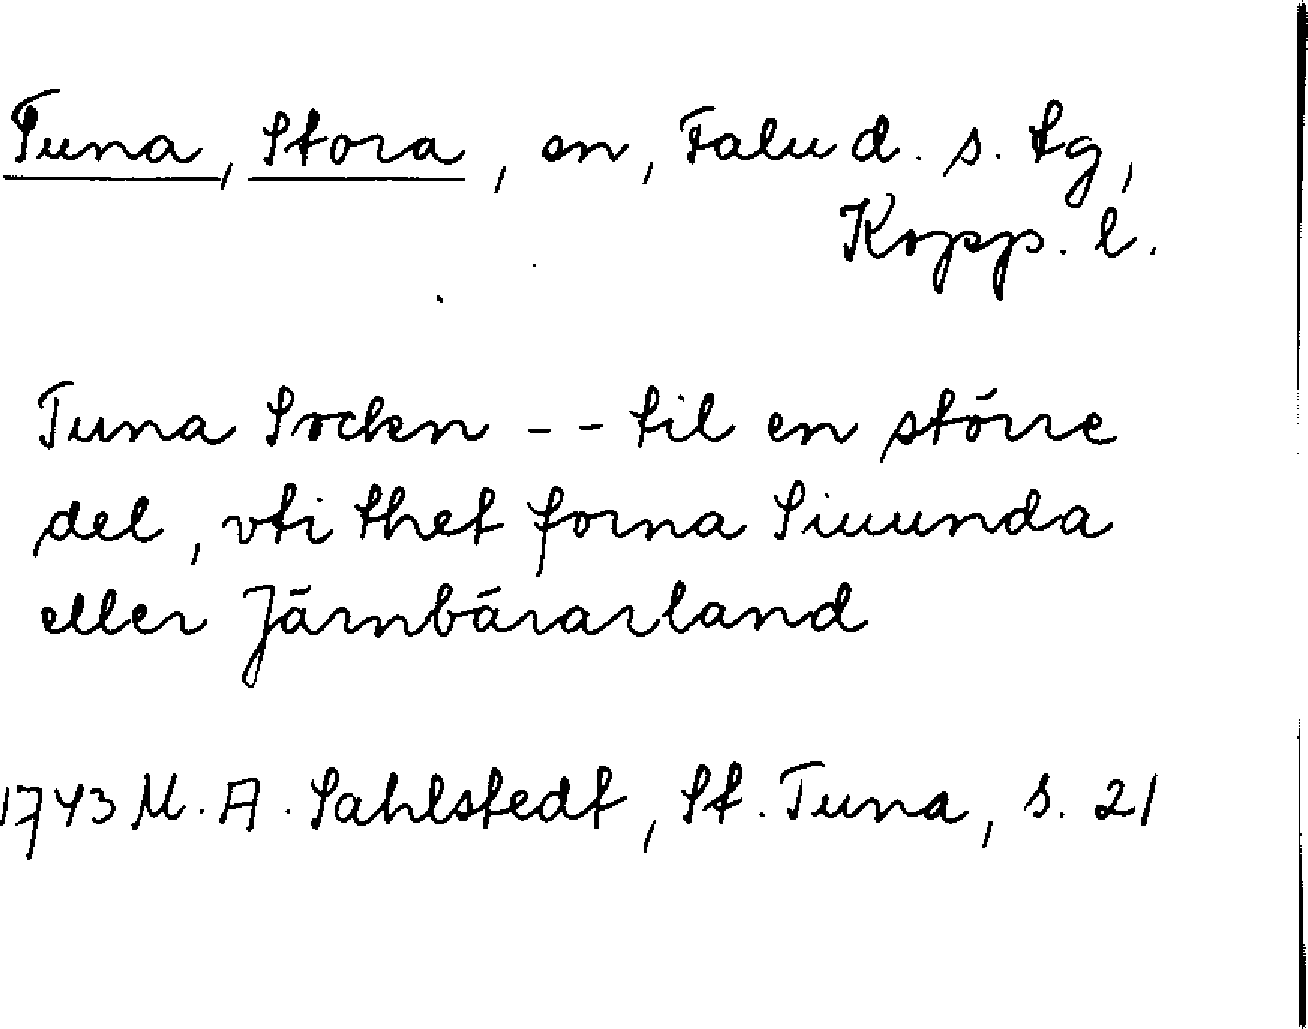 Tuna, Stora, sn, Falu d. s. tg,
Kopp. l.
Tuna Sockn -- til en större
del, vti thet forna Siuunda
eller Järnbärarland
1743 M. A. Sahlstedt, St. Tuna, s. 21